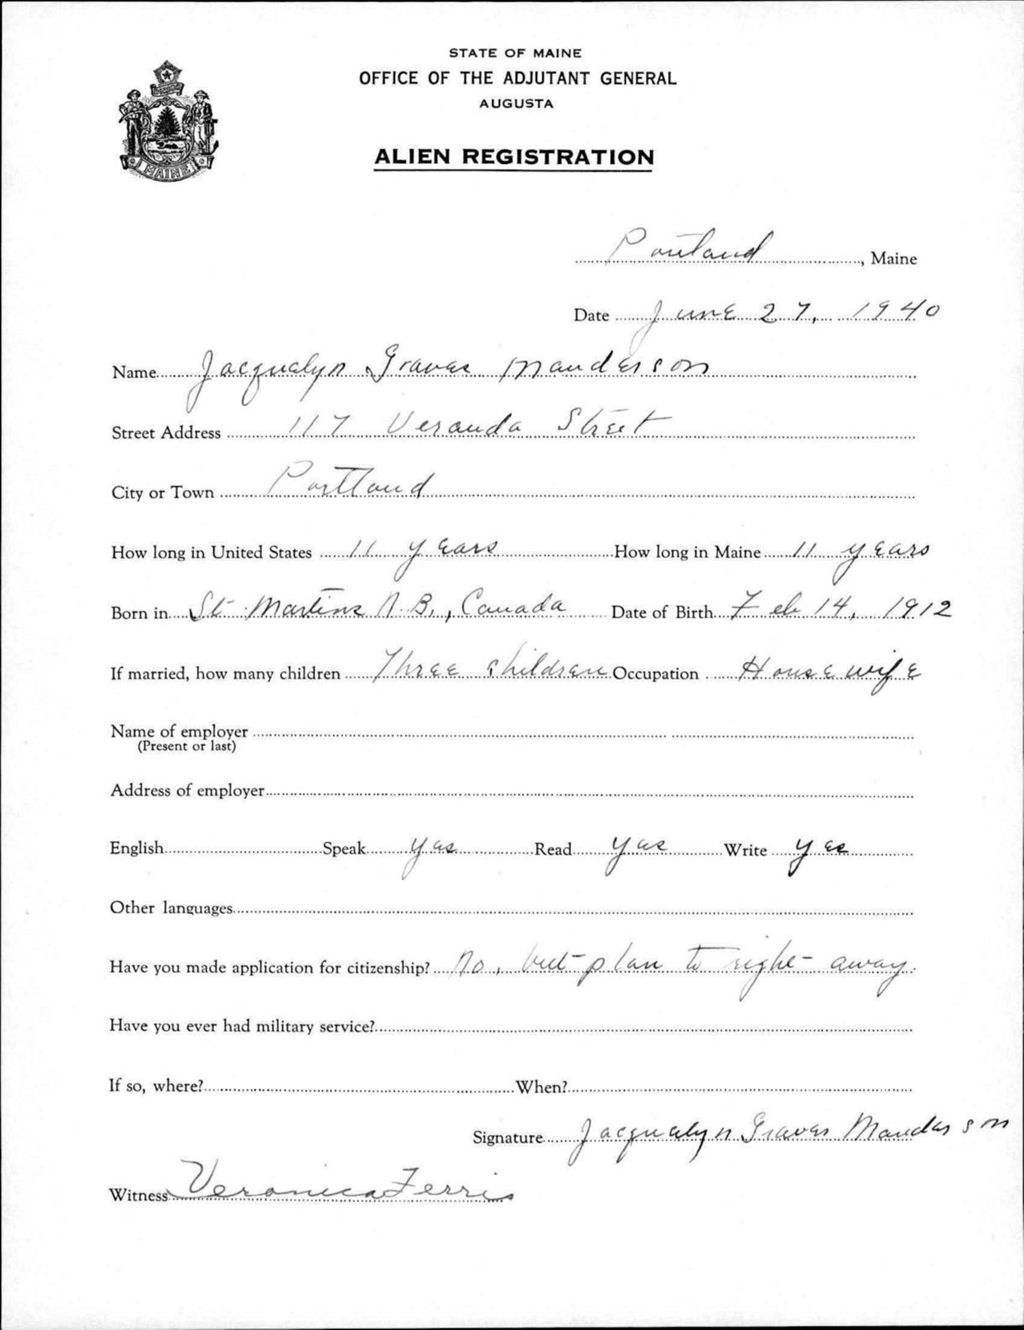 STATE OF MAINE
OFFICE OF THE ADJUTANT GENERAL
AUGUSTA
ALIEN REGISTRATION
MAINE
Portland, Maine
Date June 27, 1940
Name Jacquelyn Graves Manderson
Street Address 117 Veranda Street
City or Town Portland
How long in United States 11 years How long in Maine 11 years
Born in St Martins N.B., Canada Date of Birth Feb 14, 1912
If married, how many children Three children Occupation Housewife
Name of employer
(Present or last)
Address of employer
English Speak yes Read yes Write yes
Other languages
Have you made application for citizenship? No, but plan to right away.
Have you ever had military service?
If so, where? When?
Signature Jacquelyn Graves Manderson
Witness Veronica Ferris